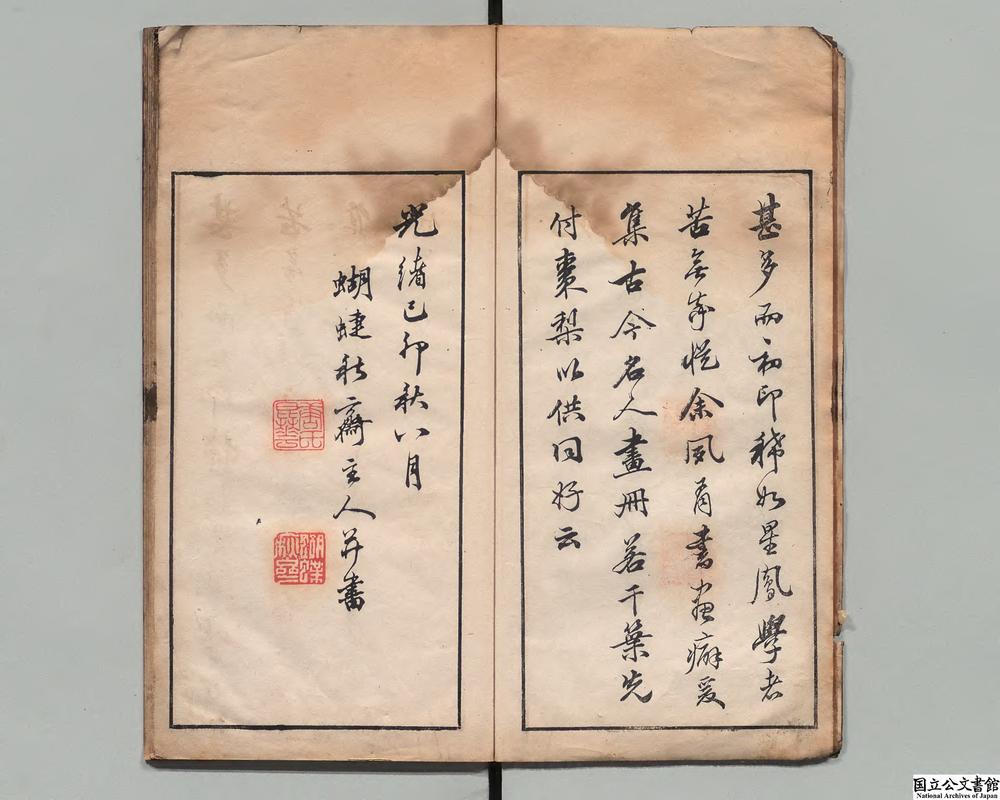 甚多而初印稀如星鳳學者
苦無承悦余夙有書畫癖爰
集古今名人畫冊若干葉先
付棗梨以供同好云
光緒己卯秋八月
蝴蜨秋齋主人并書
蝴蝶秋齋
国立公文書館
National Archives of Japan